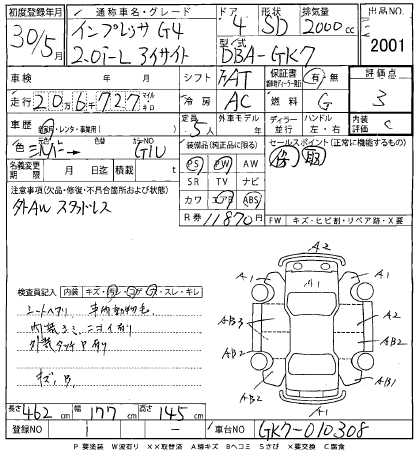 初度登録年月 通称車名・グレード ドア 形状 排気量 出品NO.
30年5月 インプレッサ G4 4 SD 2000cc 2001
2.0i-L アイサイト 型式 DBA-GK7
車検 年 月 シフト FAT 保証書 有 無 評価点
走行 20万6千727 マイル キロ 冷房 AC 燃料 G 3
車歴 自家用・レンタ・事業用( ) 定員 5人 外車モデル年 ディーラー 並行 ハンドル 左・右 内装 C
色 シルバー 色替 カラーNO G1U 装備品(純正品に限る) セールスポイント(正常に機能するもの)
名義変更期限 月 日迄 積載 t PS PW AW 保 取
SR TV ナビ
注意事項(欠品・修復・不具合箇所および状態) カワ エアB ABS
外AW スタッドレス R券 11870円 FW キズ・ヒビ割・リペア跡・X要
A2
A1 A1
A1
検査員記入 内装 キズ・汚レ・コゲ・穴・スレ・キレ
シートヘタリ 車内動物毛 AB3 A2
内装ゴミ ニオイ有り AB2
外装タッチP有り AB2 AB1
キズ、凹 A2
A1
長さ 462cm 幅 177cm 高さ 145cm
登録NO 車台NO GK7-010308
P 要塗装 W波有り XX取替済 A線キズ Bヘコミ Sさび X要交換 C腐食